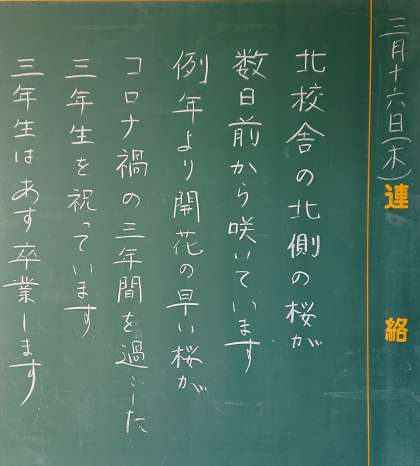 三月十六日(木)
連絡
北校舎の北側の桜が
数日前から咲いています
例年より開花の早い桜が
コロナ禍の三年間を過ごした
三年生を祝っています
三年生はあす卒業します